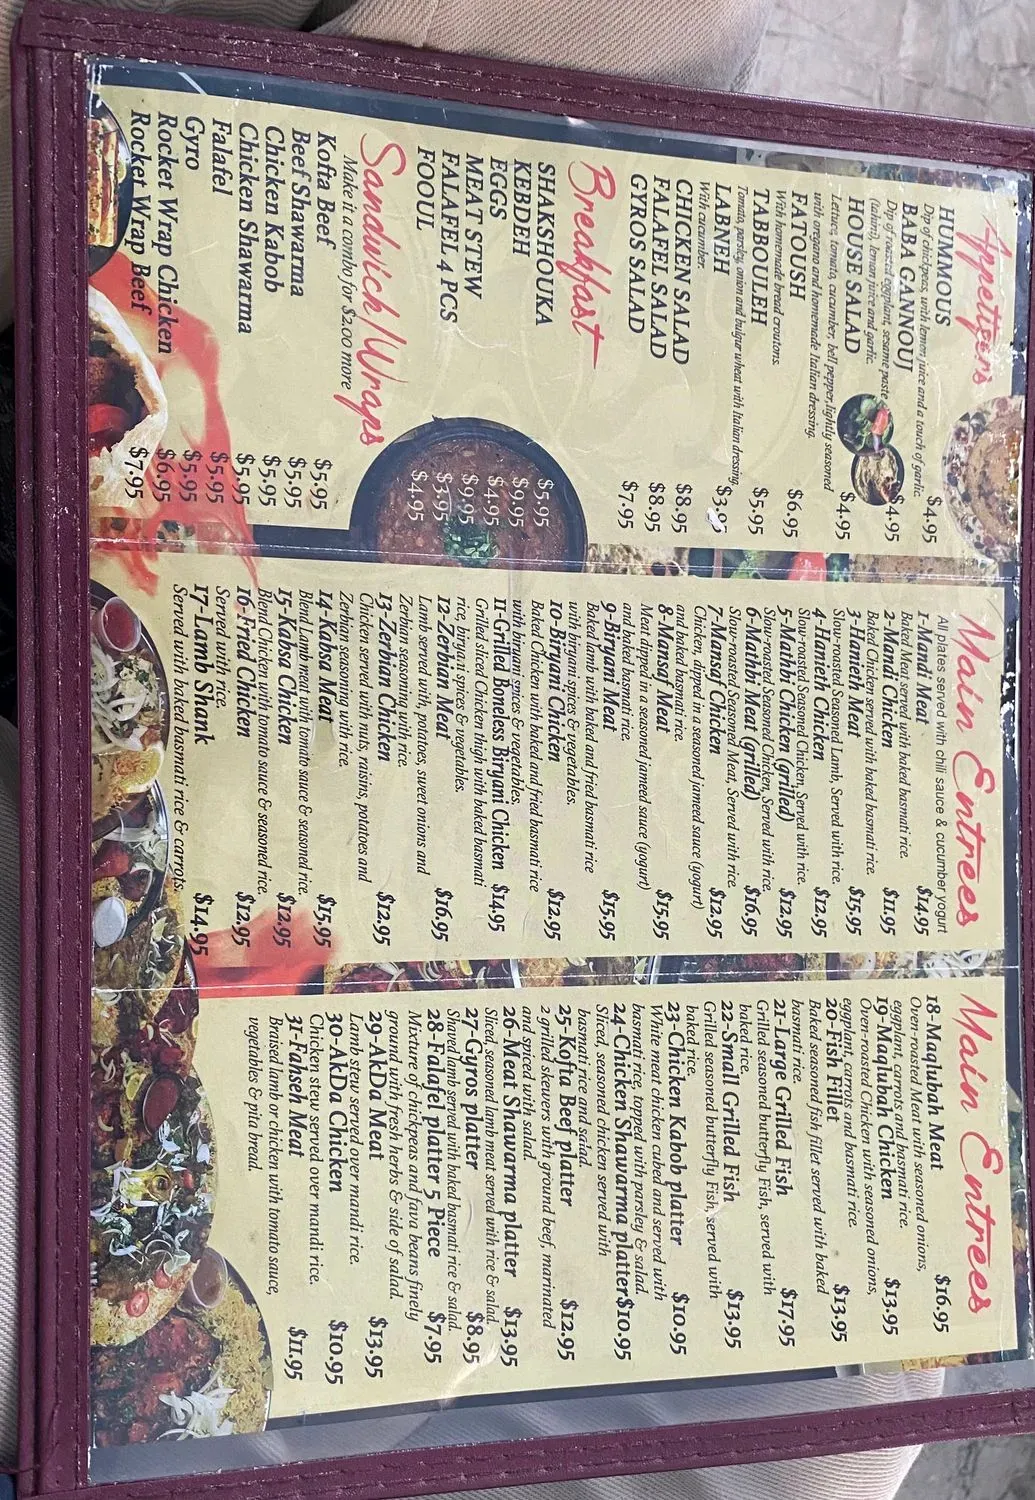 Appetizers
HUMMOUS $4.95
Dip of chickpeas, with lemon juice and a touch of garlic.
BABA GANNOUJ $4.95
Dip of roasted eggplant, sesame paste
(tahini), lemon juice and garlic.
HOUSE SALAD $4.95
Lettuce, tomato, cucumber, bell pepper, lightly seasoned
with oregano and homemade Italian dressing.
FATOUSH $6.95
With homemade bread croutons.
TABBOULEH $5.95
Tomato, parsley, onion and bulgur wheat with Italian dressing.
LABNEH $3.95
With cucumber.
CHICKEN SALAD $8.95
FALAFEL SALAD $8.95
GYROS SALAD $7.95
Breakfast
SHAKSHOUKA $5.95
KEBDEH $9.95
EGGS $4.95
MEAT STEW $9.95
FALAFEL 4 PCS $3.95
FOOUL $4.95
Sandwich/Wraps
Make it a combo for $2.00 more
Kofta Beef $5.95
Beef Shawarma $5.95
Chicken Kabob $5.95
Chicken Shawarma $5.95
Falafel $5.95
Gyro $5.95
Rocket Wrap Chicken $6.95
Rocket Wrap Beef $7.95
Main Entrees
All plates served with chili sauce & cucumber yogurt
1-Mandi Meat $14.95
Baked Meat served with baked basmati rice.
2-Mandi Chicken $11.95
Baked Chicken served with baked basmati rice.
3-Haneth Meat $15.95
Slow-roasted Seasoned Lamb, Served with rice.
4-Hanieth Chicken $12.95
Slow-roasted Seasoned Chicken, Served with rice.
5-Mathbi Chicken (grilled) $12.95
Slow-roasted Seasoned Chicken, Served with rice.
6-Mathbi Meat (grilled) $16.95
Slow-roasted Seasoned Meat, Served with rice.
7-Mansaf Chicken $12.95
Chicken, dipped in a seasoned jameed sauce (yogurt)
and baked basmati rice.
8-Mansaf Meat $15.95
Meat dipped in a seasoned jameed sauce (yogurt)
and baked basmati rice.
9-Biryani Meat $15.95
Baked lamb with baked and fried basmati rice
with biryani spices & vegetables.
10-Biryani Chicken $12.95
Baked Chicken with baked and fried basmati rice
with biryani spices & vegetables.
11-Grilled Boneless Biryani Chicken $14.95
Grilled sliced Chicken thigh with baked basmati
rice, biryani spices & vegetables.
12-Zerbian Meat $16.95
Lamb served with, potatoes, sweet onions and
Zerbian seasoning with rice.
13-Zerbian Chicken $12.95
Chicken served with nuts, raisins, potatoes and
Zerbian seasoning with rice.
14-Kabsa Meat $15.95
Blend Lamb with tomato sauce & seasoned rice.
15-Kabsa Chicken $12.95
Blend Chicken with tomato sauce & seasoned rice.
16-Fried Chicken $12.95
Served with rice.
17-Lamb Shank $14.95
Served with baked basmati rice & carrots.
Main Entrees
18-Maqlubah Meat $16.95
Oven-roasted Meat with seasoned onions,
eggplant, carrots and basmati rice.
19-Maqlubah Chicken $13.95
Oven-roasted Chicken with seasoned onions,
eggplant, carrots and basmati rice.
20-Fish Fillet $13.95
Baked seasoned fish fillet served with baked
basmati rice.
21-Large Grilled Fish $17.95
Grilled seasoned butterfly Fish, served with
baked rice.
22-Small Grilled Fish $13.95
Grilled seasoned butterfly Fish, served with
baked rice.
23-Chicken Kabob platter $10.95
White meat chicken cubed and served with
basmati rice, topped with parsley & salad.
24-Chicken Shawarma platter $10.95
Sliced, seasoned chicken served with
basmati rice and salad.
25-Kofta Beef platter $12.95
2 grilled skewers with ground beef, marinated
and spiced with salad.
26-Meat Shawarma platter $13.95
Sliced, seasoned lamb meat served with rice & salad.
27-Gyros platter $8.95
Shaved lamb served with baked basmati rice & salad.
28-Falafel platter 5 Piece $7.95
Mixture of chickpeas and fava beans finely
ground, with fresh herbs & side of salad.
29-AkDa Meat $13.95
Lamb stew served over mandi rice.
30-AkDa Chicken $10.95
Chicken stew served over mandi rice.
31-Fahseh Meat $11.95
Braised lamb or chicken with tomato sauce,
vegetables & pita bread.